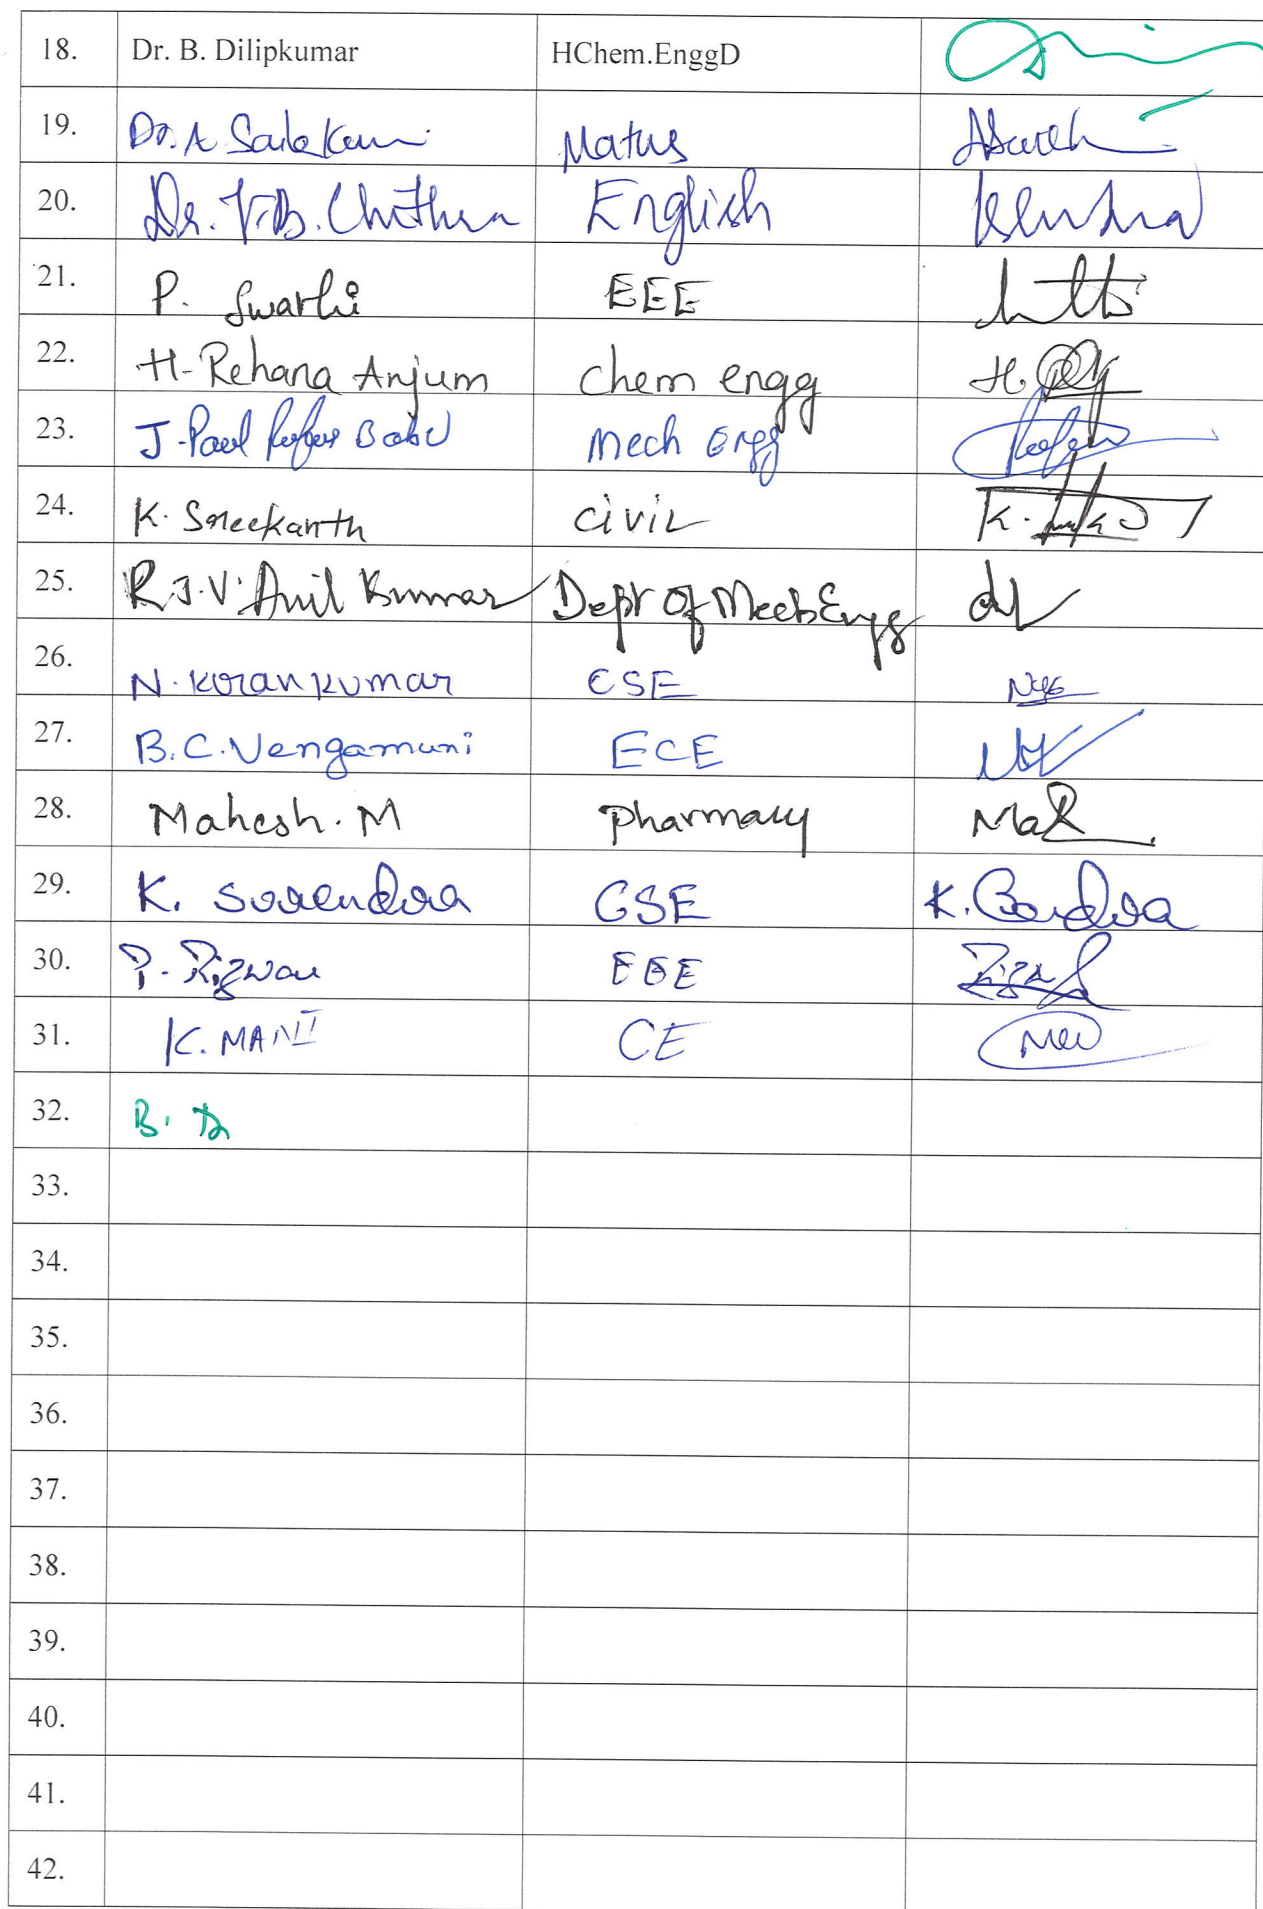 18. Dr. B. Dilipkumar HChem.EnggD
19. Dr. A. Maths
20. Dr. V.B. Chithra English
21. P. Swathi EEE
22. H. Rehana Anjum chem engg H.
23. J. Paul Rufus Babu Mech Engg
24. K. Sreekanth civil K.
25. R.J.V. Anil Kumar Dept of Mech Engg
26. N. Kiran kumar CSE
27. B.C. Vengamuni ECE
28. Mahesh. M pharmacy
29. K. Surendra CSE K.
30. P. Rizwan EEE
31. K. MANI CE
32. B. D
33.
34.
35.
36.
37.
38.
39.
40.
41.
42.